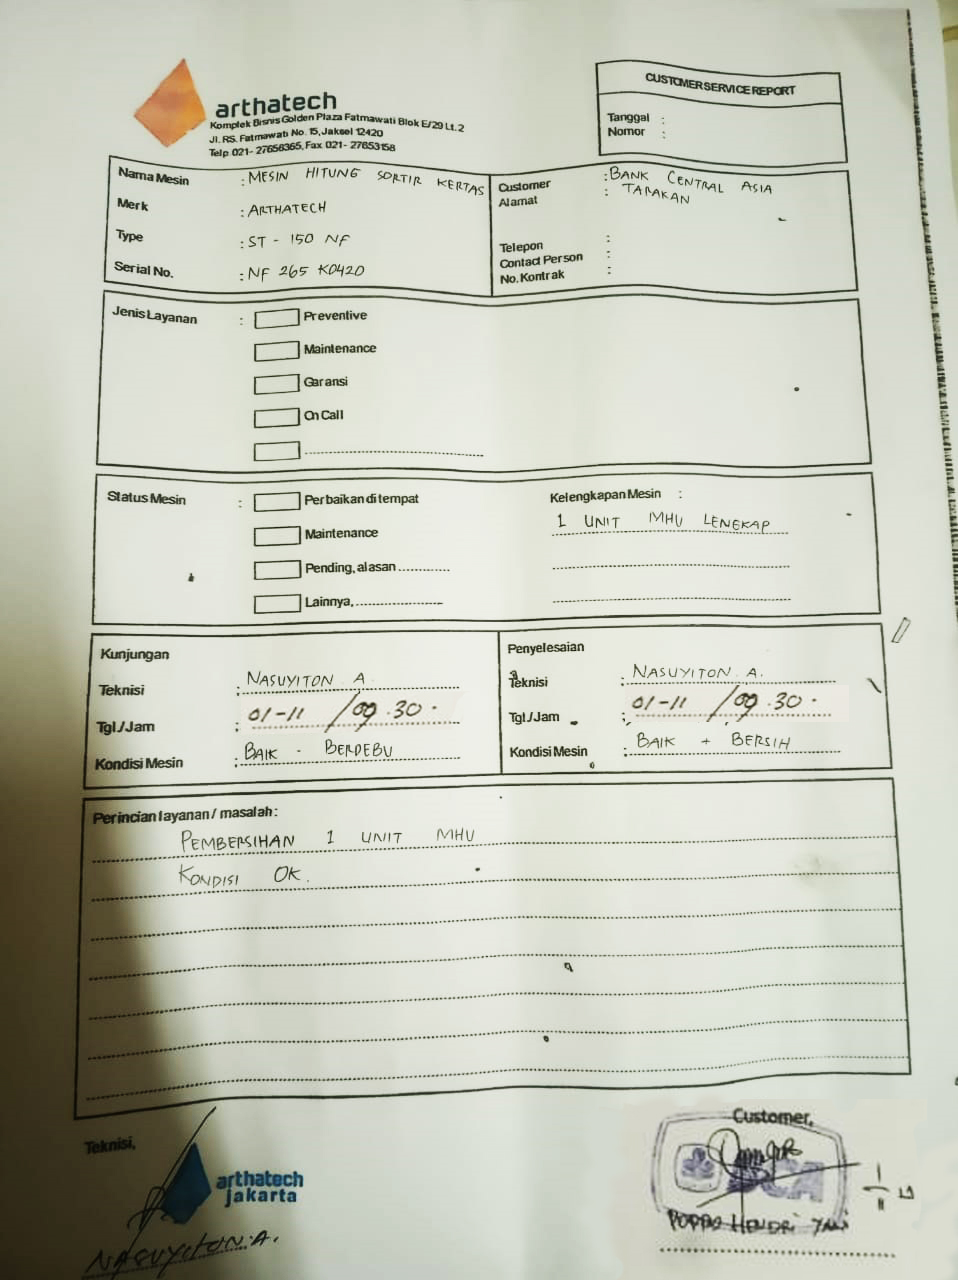 arthatech
Komplek Bisnis Golden Plaza Fatmawati Blok E/29 Lt. 2
Jl. RS. Fatmawati No. 15, Jaksel 12420
Telp. 021- 27656365, Fax. 021- 27653158
CUSTOMER SERVICE REPORT
Tanggal :
Nomor :
Nama Mesin : MESIN HITUNG SORTIR KERTAS
Merk : ARTHATECH
Type : ST - 150 NF
Serial No. : NF 265 K0420
Customer : BANK CENTRAL ASIA
Alamat : TARAKAN
Telepon :
Contact Person :
No. Kontrak :
Jenis Layanan : Preventive
Maintenance
Garansi
On Call
Status Mesin : Perbaikan di tempat
Maintenance
Pending, alasan ............
Lainnya, ....................
Kelengkapan Mesin :
1 UNIT MHU LENGKAP
Kunjungan
Teknisi : NASUYITON A.
Tgl./Jam : 01-11 / 09.30.
Kondisi Mesin : BAIK - BERDEBU
Penyelesaian
Teknisi : NASUYITON A.
Tgl./Jam : 01-11 / 09.30.
Kondisi Mesin : BAIK + BERSIH
Perincian layanan / masalah :
PEMBERSIHAN 1 UNIT MHU
KONDISI OK.
Teknisi,
arthatech
jakarta
NASUYITON.A.
Customer,
BCA
HENDRI